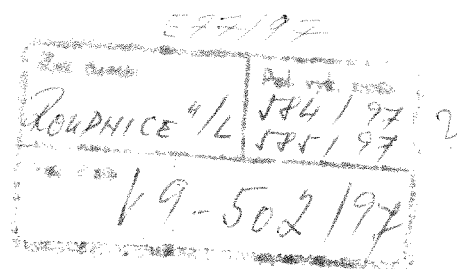 E77/97
ROUDNICE n/L
584/97
585/97
?
V9-502/97